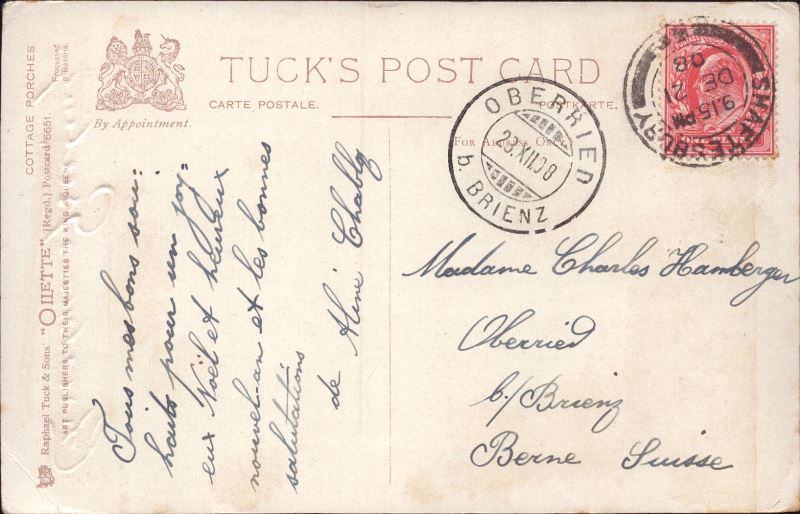 TUCK'S POST CARD
CARTE POSTALE.
POSTKARTE.
By Appointment.
For Address Only
COTTAGE PORCHES
Processed in Bavaria.
Raphael Tuck & Sons' "OILETTE" [Regd.] Postcard 6651.
ART PUBLISHERS TO THEIR MAJESTIES THE KING & QUEEN.
SHAFTESBURY
9.15 PM
DE 21
08
OBERRIED
23.XII.08
b. BRIENZ
Tous mes bons sou-
haits pour un joy-
eux Noël et heureux
nouvel-an et les bonnes
salutations
de Aline Chably
Madame Charles Hamberger
Oberried
b/Brienz
Berne Suisse